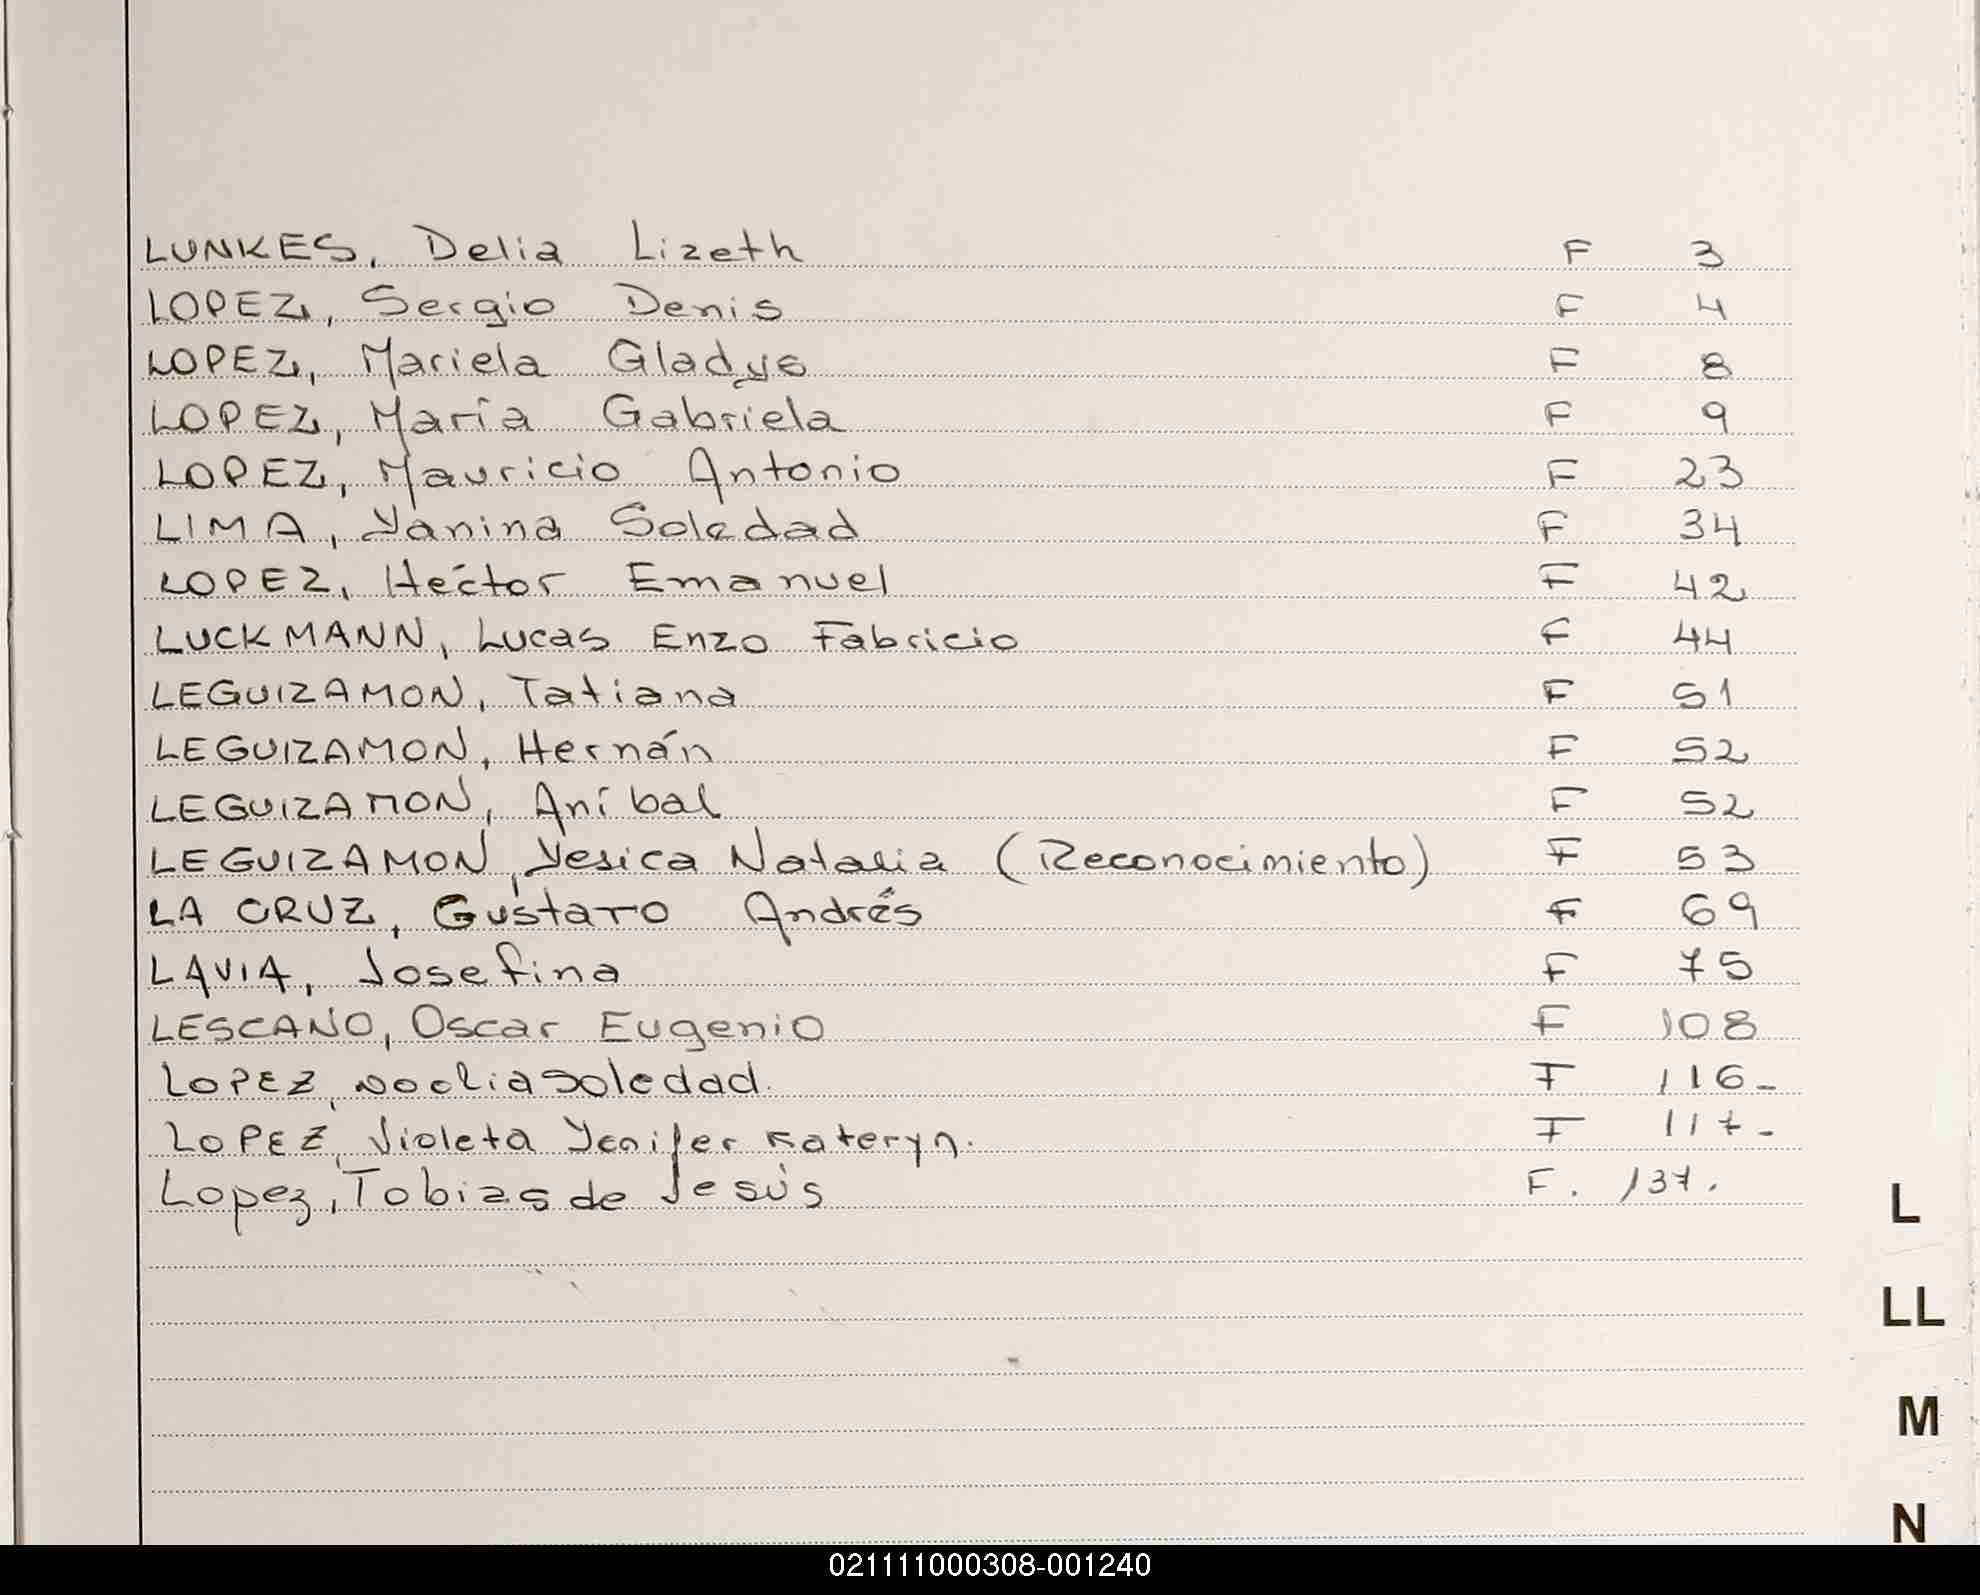 LUNKES, Delia Lizeth F 3
LOPEZ, Sergio Denis F 4
LOPEZ, Mariela Gladys F 8
LOPEZ, María Gabriela F 9
LOPEZ, Mauricio Antonio F 23
LIMA, Yanina Soledad F 34
LOPEZ, Héctor Emanuel F 42
LUCKMANN, Lucas Enzo Fabricio F 44
LEGUIZAMON, Tatiana F 51
LEGUIZAMON, Hernán F 52
LEGUIZAMON, Aníbal F 52
LEGUIZAMON, Yesica Natalia (Reconocimiento) F 53
LA CRUZ, Gustavo Andrés F 69
LAVIA, Josefina F 75
LESCANO, Oscar Eugenio F 108
LOPEZ, Noelia Soledad. F 116-
LOPEZ, Violeta Yenifer Kateryn. F 117-
Lopez, Tobias de Jesús F. 137.
L
LL
M
N
021111000308-001240